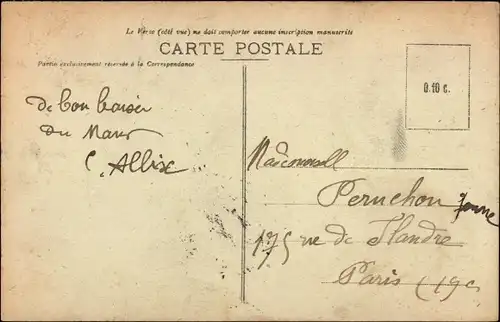 Le Verso (côté vue) ne doit comporter aucune inscription manuscrite
CARTE POSTALE
Partie exclusivement réservée à la Correspondance
0.10 c.
de bon baiser
du Mans
Allix
Mademoisell
Peruchon Jeanne
175 rue de Flandre
Paris (19e